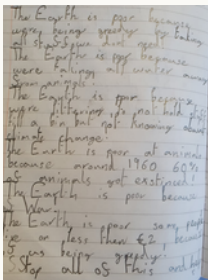 The Earth is poor because
were being greedy for taking
all stuff we dont need!
The Earth is poor because
were taking all water away
from animals!
The Earth is poor because
were littering, do not hold
till a bin but not knowing about
climate change.
The Earth is poor at animals
because around 1960 60%
of animals got exstinced!
The Earth is poor because
of War.
The Earth is poor some people
on less than €2, because
of us being greedy.
Stop all of this and